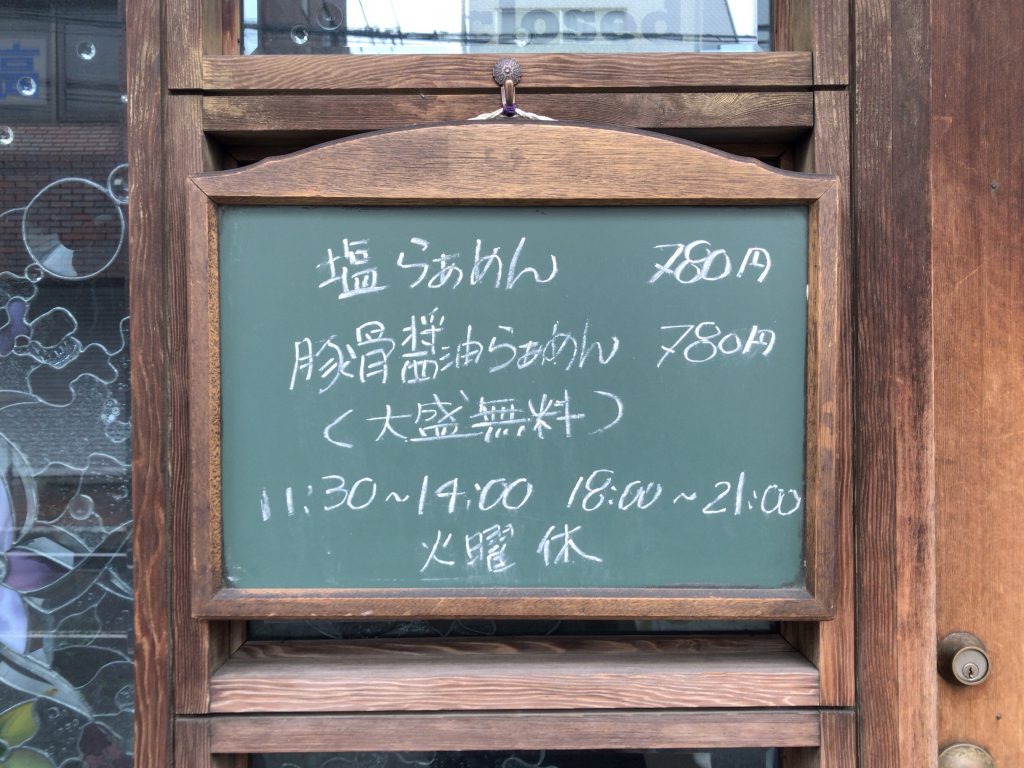 closed
塩らぁめん 780円
豚骨醤油らぁめん 780円
(大盛無料)
11:30~14:00 18:00~21:00
火曜 休